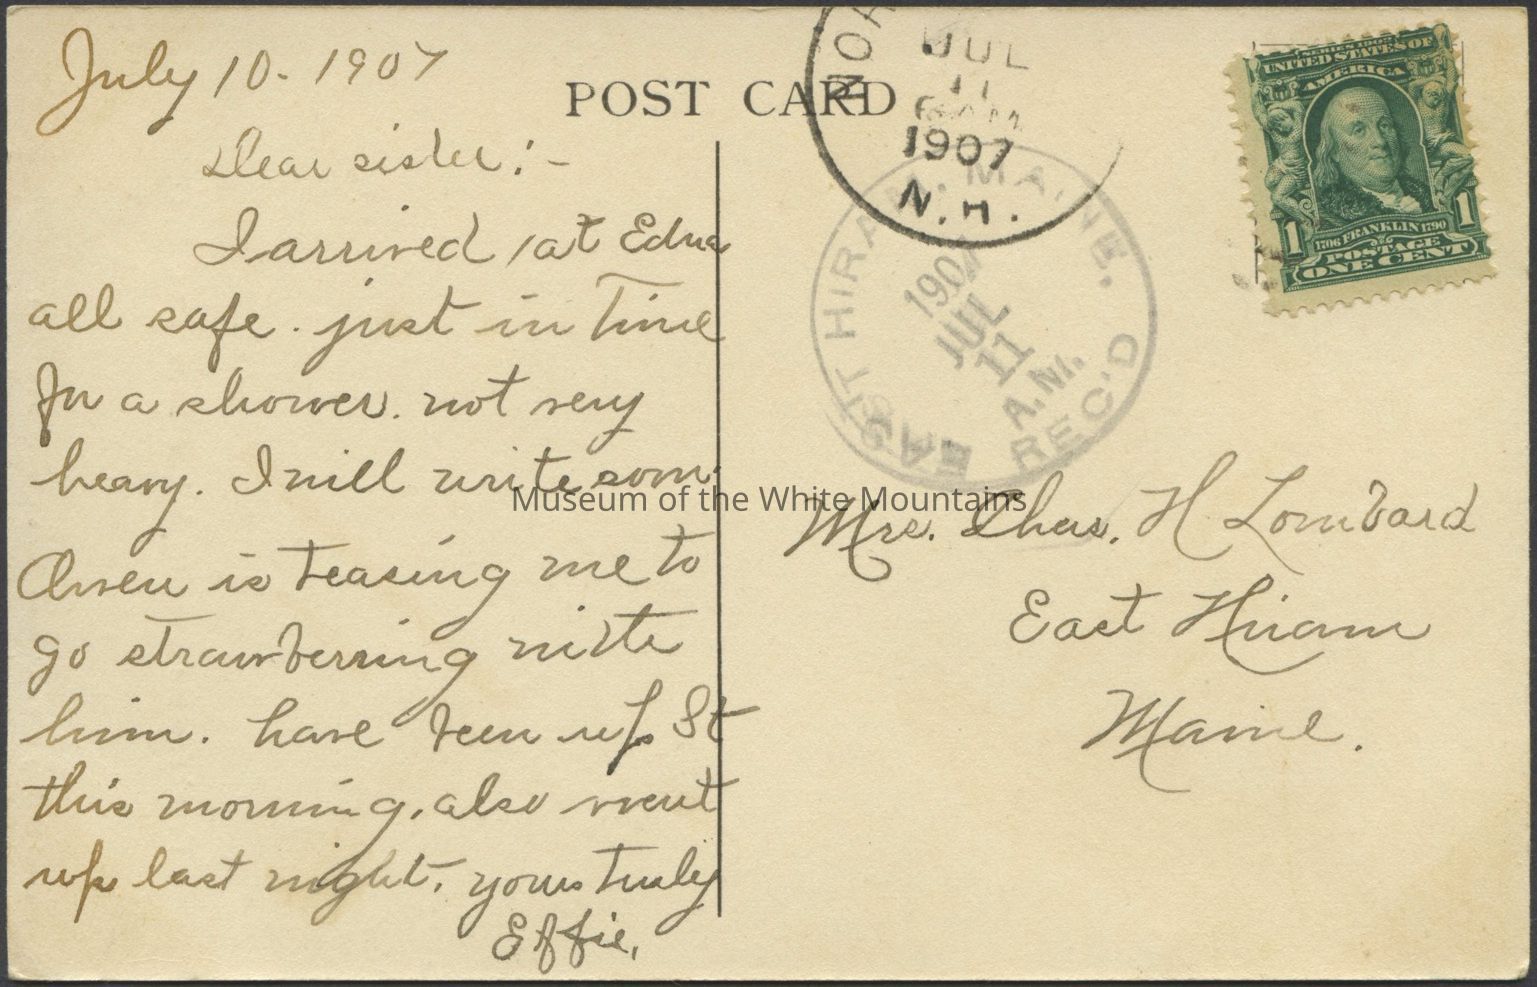 July 10. 1907
Dear sister:-
I arrived at Edna
all safe. just in time
for a shower. not very
heavy. I will write som.
Owen is teasing me to
go strawberring with
him. have been up St
this morning. also went
up last night. yours truly
Effie.
POST CARD
JUL
11
1907
N.H.
EAST HIRAM, MAINE.
1907
JUL
11
A.M.
REC'D
SERIES 1902
UNITED STATES OF
AMERICA
1706 FRANKLIN 1790
1 1
POSTAGE
ONE CENT
Museum of the White Mountains
Mrs. Chas. H Lombard
East Hiram
Maine.